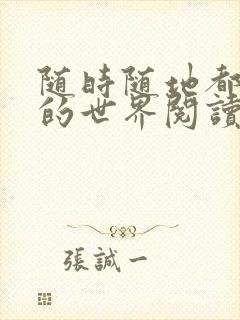 随時随地都
的世界閱讀
張誠一